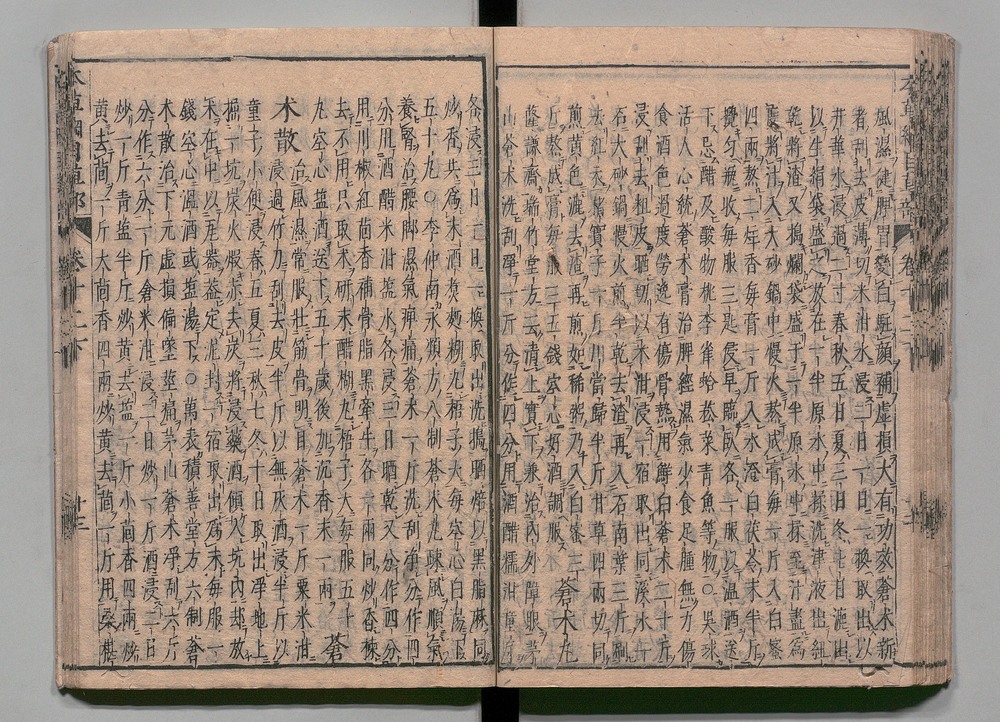 風濕健脾胃變白駐顏補虛損大有功效蒼朮新
者刮去皮薄切米泔水浸二日一日一換取出以
井華水浸過二寸春秋五日夏三日冬七日漉出
以生絹袋盛之放在一半原水中揉洗津液出紐
乾將渣又搗爛袋盛于一半原水中揉至汁盡爲
度將汁入大砂鍋中慢火熬成膏每一斤入白蜜
四兩熬二炷香每膏一斤入水澄白茯苓末半斤
攪勻瓶收每服三匙侵早臨臥各一服以温酒送
下忌醋及酸物桃李雀蛤菘菜青魚等物○吳球
活人心統蒼朮膏治脾經濕氣少食足腫無力傷
食酒色過度勞逸有傷骨熱用鮮白蒼朮二十斤
浸刮去粗皮晒切以米泔浸一宿取出同溪水一
石大砂鍋慢火煎半乾去渣再入石南葉三斤刷
去紅衣楮實子一斤川當歸半斤甘草四兩切同
煎黄色漉去渣再煎如稀粥乃入白蜜三
斤熬成膏每服三五錢空心好酒調服 蒼朮丸
薩謙齋瑞竹堂方云清上實下兼治內外障眼茅
山蒼朮洗刮淨一斤分作四分用酒醋糯泔童尿
各浸三日一日一換取出洗搗晒焙以黑脂麻同
炒香共爲末酒煑麪糊丸梧子大每空心白湯下
五十丸○李仲南永類方八制蒼朮丸疎風順氣
養腎治腰脚濕氣痺痛蒼朮一斤洗刮淨分作四
分用酒醋米泔塩水各浸三日晒乾又分作四分
用川椒紅茴香補骨脂黑牽牛各一兩同炒香揀
去不用只取朮研末醋糊丸梧子大每服五十
丸空心塩酒送下五十歲後加沉香末一兩 蒼
朮散 治風濕常服壯筋骨明目蒼朮一斤粟米泔
浸過竹刀刮去皮半斤以無灰酒浸半斤以
童子小便浸春五夏三秋七冬十日取出淨地上
掘一坑炭火煅赤去炭將浸藥酒傾入坑內却放
朮在中以瓦器蓋定泥封一宿取出爲末每服一
錢空心温酒或塩湯下○萬表積善堂方六制蒼
朮散治下元虛損偏墜莖痛茅山蒼朮淨刮六斤
分作六分一斤倉米泔浸二日炒一斤酒浸二日
炒一斤青塩半斤炒黄去塩一斤小茴香四兩炒
黄去茴一斤大茴香四兩炒黄去茴一斤用桑椹